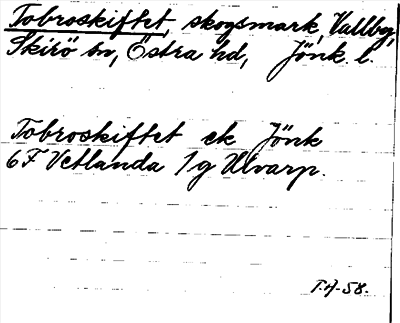 Tobroskiftet, skogsmark, Vallby,
Skirö sn, Östra hd, Jönk. l.
Tobroskiftet ek Jönk
6F Vetlanda 1g Ulvarp.
T.A-58.